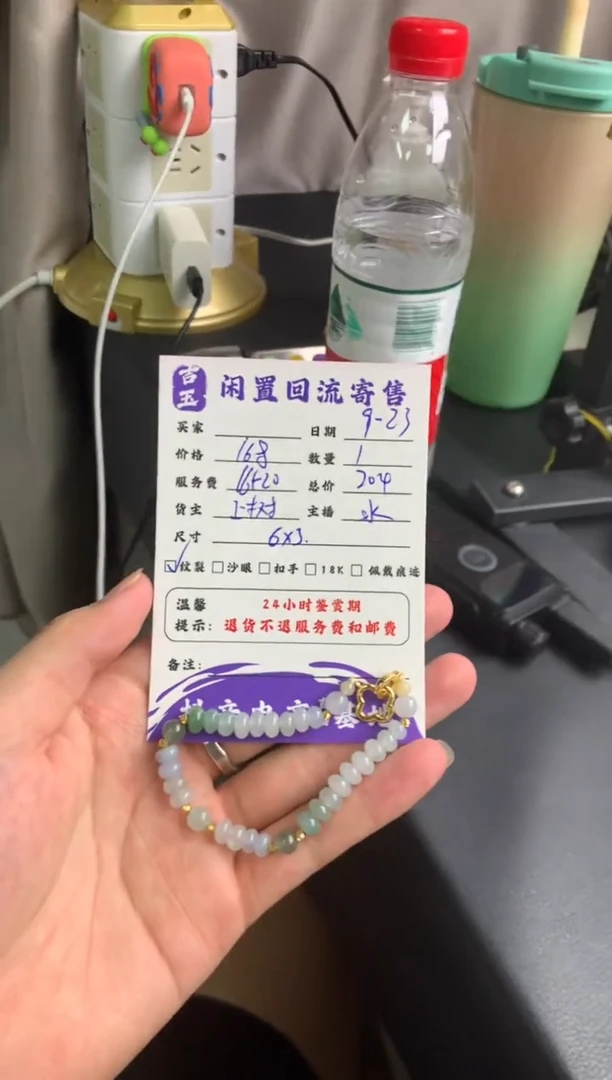 吉玉 闲置回流寄售
买家 日期 9-23
价格 168 数量 1
服务费 16+20 总价 204
货主 主播 水
尺寸 6x3.
☑纹裂 □沙眼 □扣手 □18K □佩戴痕迹
温馨 24小时鉴赏期
提示: 退货不退服务费和邮费
备注: